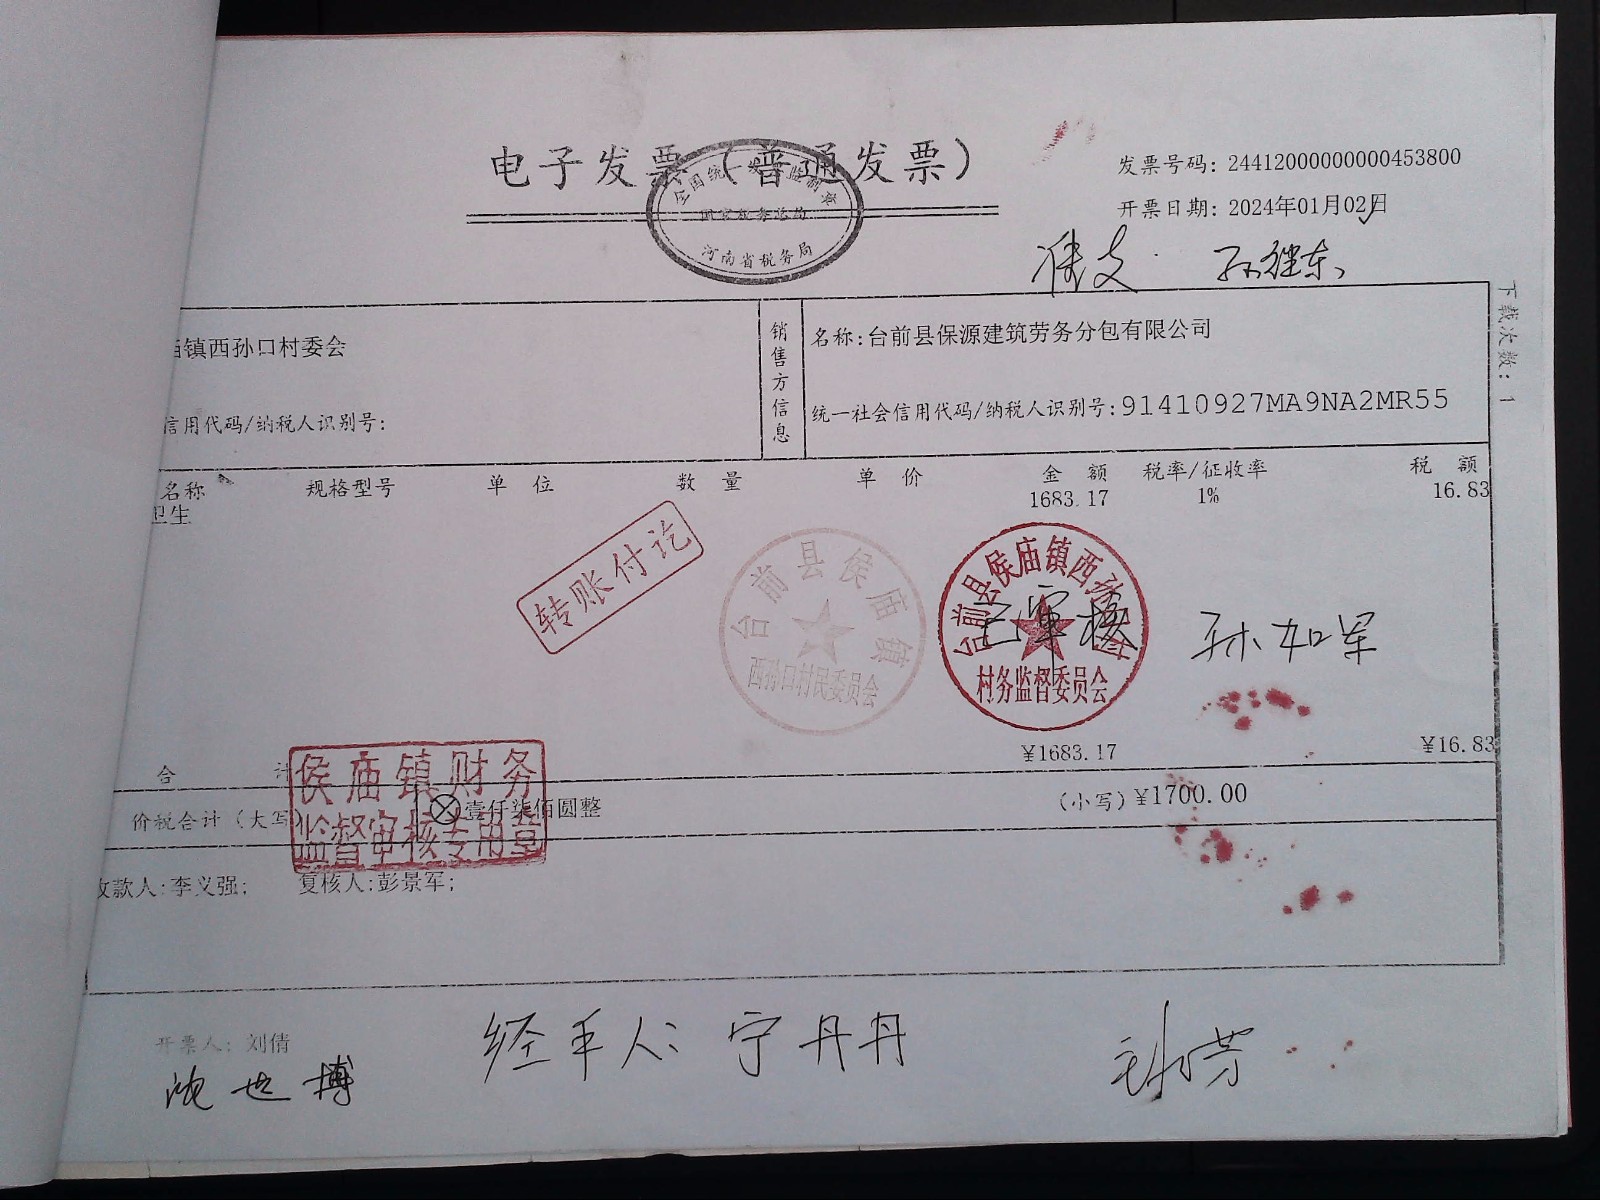 电子发票（普通发票）
全国统一发票监制章
国家税务总局
河南省税务局
发票号码: 24412000000000453800
开票日期: 2024年01月02日
准支 孙继东
下载次数: 1
庙镇西孙口村委会
信用代码/纳税人识别号:
销售方信息
名称: 台前县保源建筑劳务分包有限公司
统一社会信用代码/纳税人识别号: 91410927MA9NA2MR55
名称 规格型号 单位 数量 单价 金额 税率/征收率 税额
卫生 1683.17 1% 16.83
转账付讫
台前县侯庙镇
西孙口村民委员会
台前县侯庙镇西孙口村
村务监督委员会
孙如军
合计 ¥1683.17 ¥16.83
价税合计（大写） ⊗壹仟柒佰圆整 （小写）¥1700.00
侯庙镇财务
监督审核专用章
收款人: 李义强; 复核人: 彭景军;
开票人: 刘倩
经手人: 宁丹丹
沈世博